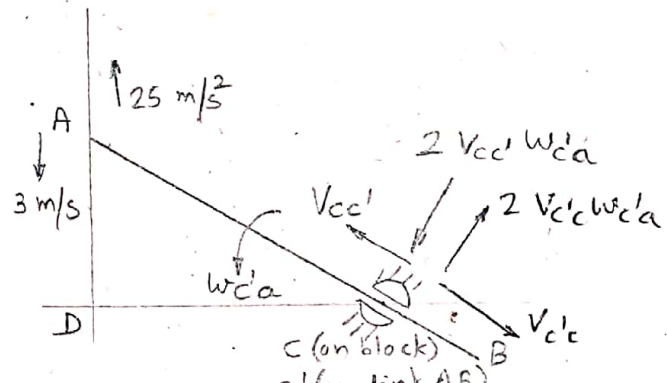 25 m/s²
A
3 m/s
2 Vcc' Wc'a
Vcc'
2 Vc'c Wc'a
Wc'a
D
Vc'c
C (on block)
B
c' (on link AB)